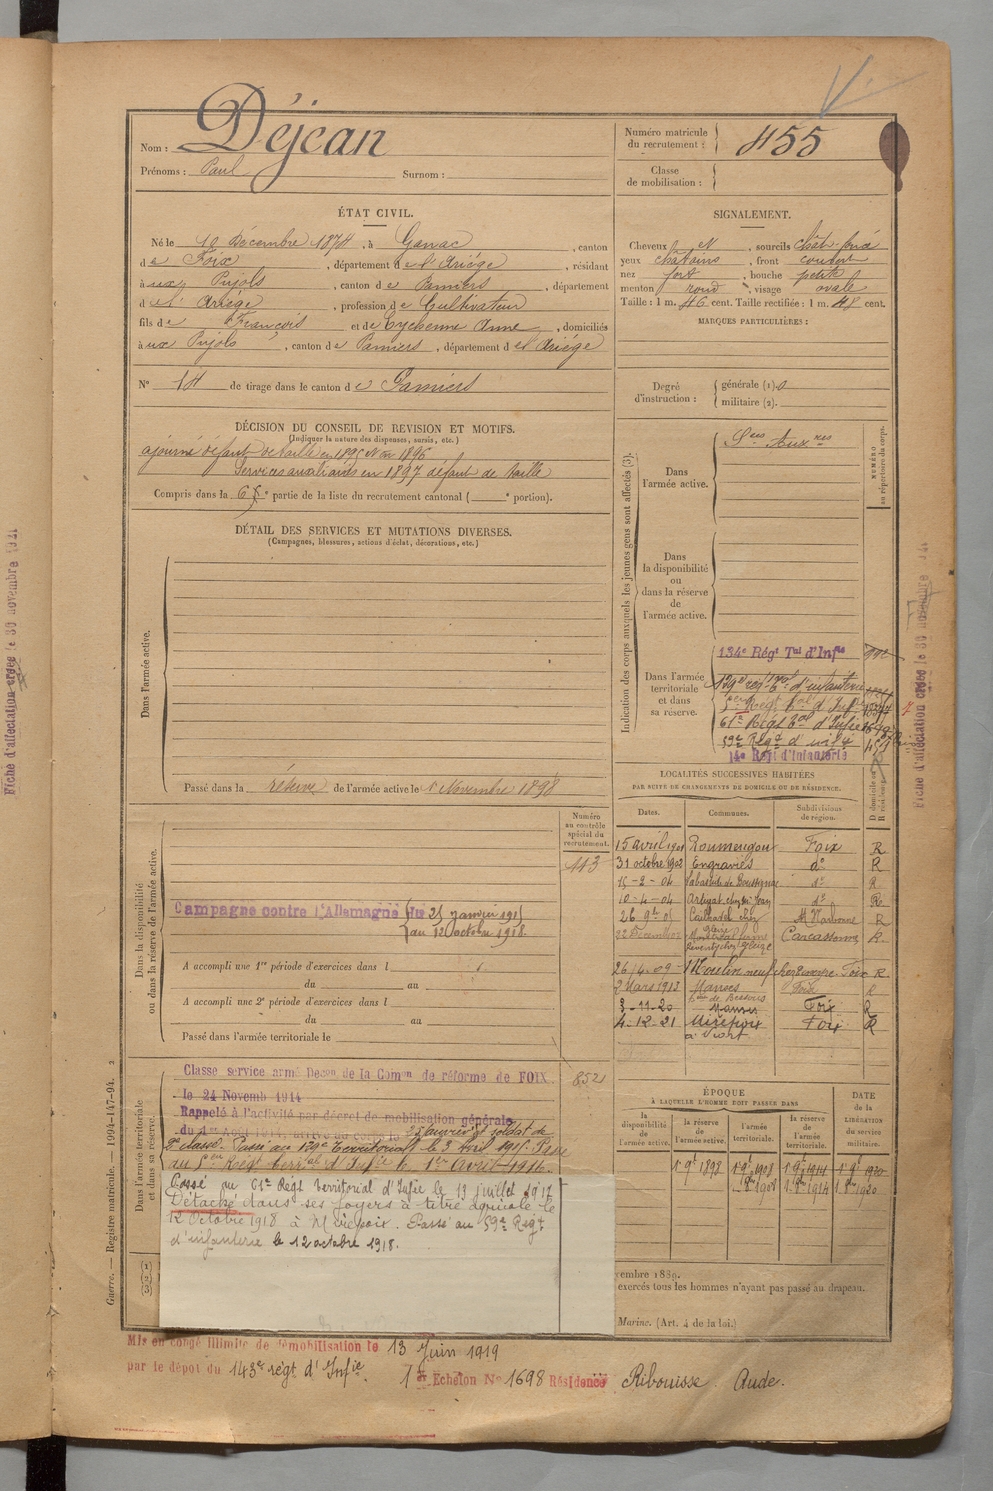 Nom : Déjean
Prénoms : Paul Surnom :
Numéro matricule du recrutement : 455
Classe de mobilisation :
ÉTAT CIVIL.
Né le 10 Décembre 1874, à Ganac, canton
de Foix, département de l'Ariége, résidant
à aux Pujols, canton de Pamiers, département
de l'Ariége, profession de Cultivateur
fils de François et de Eychenne Anne, domiciliés
à aux Pujols, canton de Pamiers, département de l'Ariége
N° 14 de tirage dans le canton de Pamiers
SIGNALEMENT.
Cheveux et, sourcils chât-foncé
yeux châtains, front couvert
nez fort, bouche petite
menton rond, visage ovale
Taille : 1 m. 46 cent. Taille rectifiée : 1 m. 48 cent.
MARQUES PARTICULIÈRES :
Degré d'instruction : générale (1). 0
militaire (2).
DÉCISION DU CONSEIL DE REVISION ET MOTIFS.
(Indiquer la nature des dispenses, sursis, etc.)
ajourné défaut de taille en 1895 et en 1896
Services auxiliaires en 1897 défaut de taille
Compris dans la 6e partie de la liste du recrutement cantonal ( e portion).
DÉTAIL DES SERVICES ET MUTATIONS DIVERSES.
(Campagnes, blessures, actions d'éclat, décorations, etc.)
Dans l'armée active.
Passé dans la réserve de l'armée active le 1 Novembre 1898
Indication des corps auxquels les jeunes gens sont affectés (3).
NUMÉRO au répertoire du corps.
Dans l'armée active.
Sces Auxres
Dans la disponibilité ou dans la réserve de l'armée active.
Dans l'armée territoriale et dans sa réserve.
134e Régt Tal d'Infie
129e régt tal d'infanterie
5e Régt tal d'Infie
61e Régt Tal d'Infie
59e Régt d'infie
14e Regt d'Infanterie
Numéro au contrôle spécial du recrutement.
113
Dans la disponibilité ou dans la réserve de l'armée active.
Campagne contre l'Allemagne (du 25 janvier 1915
(au 12 octobre 1918.
A accompli une 1re période d'exercices dans l
du au
A accompli une 2e période d'exercices dans l
du au
Passé dans l'armée territoriale le
LOCALITÉS SUCCESSIVES HABITÉES
PAR SUITE DE CHANGEMENTS DE DOMICILE OU DE RÉSIDENCE.
Dates. Communes. Subdivisions de région.
15 avril 1901 Roumengou Foix R
31 octobre 1902 Engraviès do R
15-2-04 Labastide de Bousignac do R
10-4-04 Artigat chez Jean do R
26 9bre 05 Cailhavel chez Narbonne R
Carcassonne R.
26/4-09 Moulin neuf Foix R
2 Mars 1913 Manses Foix R
3-11-20 Manses Foix R
4-12-21 Mirepoix Foix R
Dans l'armée territoriale et dans sa réserve.
852
Classe service armé Decon de la Comon de réforme de FOIX
le 24 Novemb 1914
Rappelé à l'activité par décret de mobilisation générale
du 1er Août 1914, arrivé au corps le 25 Janvier et soldat de
2e classe. Passé au 129e Territorial le 3 Avril 1915. Passé
au 5e Régt terrial d'Infie le 1er Avril 1916.
Passé au 61e Régt territorial d'Infie le 13 juillet 1917
Détaché dans ses foyers à titre agricole le
12 Octobre 1918 à Mirepoix. Passé au 59e Régt
d'infanterie le 12 octobre 1918.
ÉPOQUE
A LAQUELLE L'HOMME DOIT PASSER DANS
la disponibilité de l'armée active.
la réserve de l'armée active.
l'armée territoriale.
la réserve de l'armée territoriale.
DATE de la LIBÉRATION du service militaire.
1 9bre 1898 1 9bre 1908 1 9bre 1914 1 9bre 1920
embre 1889.
exercés tous les hommes n'ayant pas passé au drapeau.
Marine. (Art. 4 de la loi.)
Mis en congé illimité de démobilisation le 13 Juin 1919
par le dépot du 143e régt d'Infie. 1er Echelon No 1698 Résidence Ribouisse Aude.
Guerre. — Registre matricule. — 1994-147-94. 2
Fiche d'affectation créée le 30 novembre
Fiche d'affectation créée le 30 novembre 1921